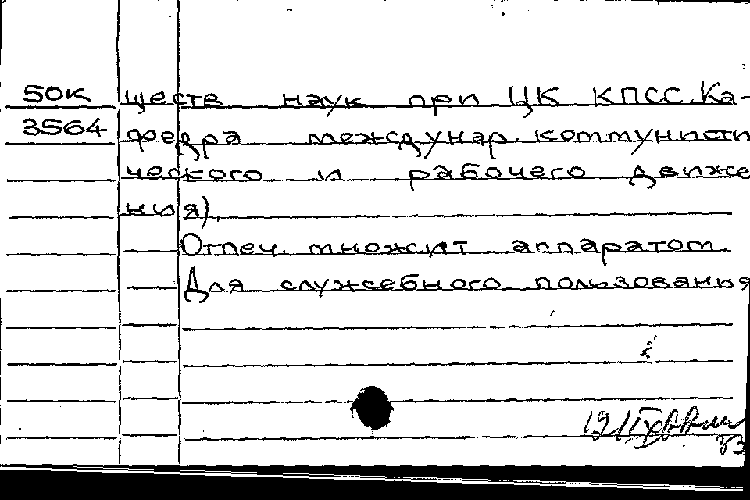 50к ществ наук при ЦК КПСС. Ка-
3564 федра междунар. коммунисти
ческого и рабочего движе
ния).
Отпеч. множит аппаратом.
Для служебного пользования